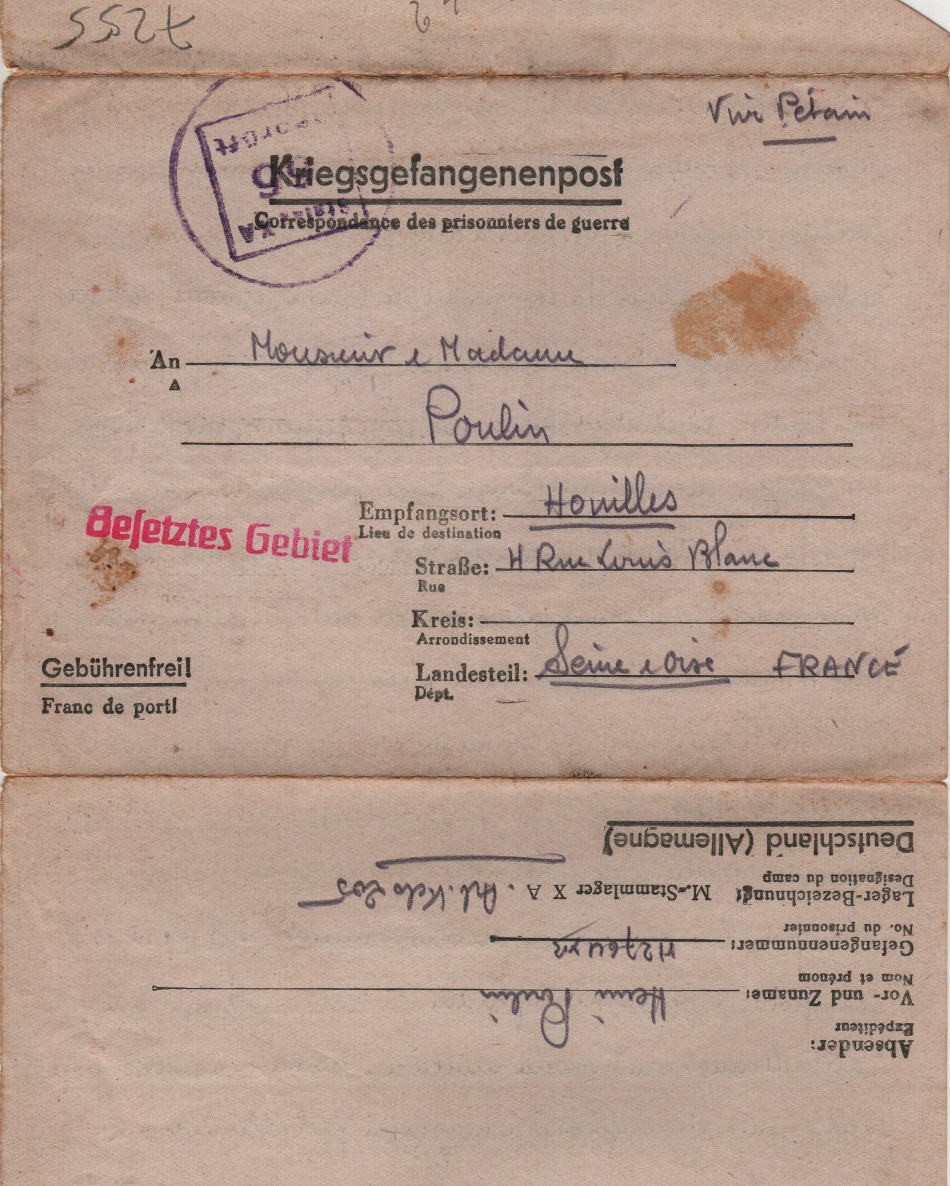 7255
Vive Pétain
geprüft
35
Stalag XA
Kriegsgefangenenpost
Correspondance des prisonniers de guerre
An Monsieur e Madame
A
Poulin
Besetztes Gebiet
Empfangsort: Houilles
Lieu de destination
Straße: 4 Rue Louis Blanc
Rue
Kreis:
Arrondissement
Landesteil: Seine e Oise FRANCE
Dépt.
Gebührenfrei!
Franc de port!
Absender:
Expéditeur
Vor- und Zuname: Henri Poulin
Nom et prénom
Gefangenennummer:
No. du prisonnier
Lager-Bezeichnung: M.-Stammlager X A.
Designation du camp
Deutschland (Allemagne)